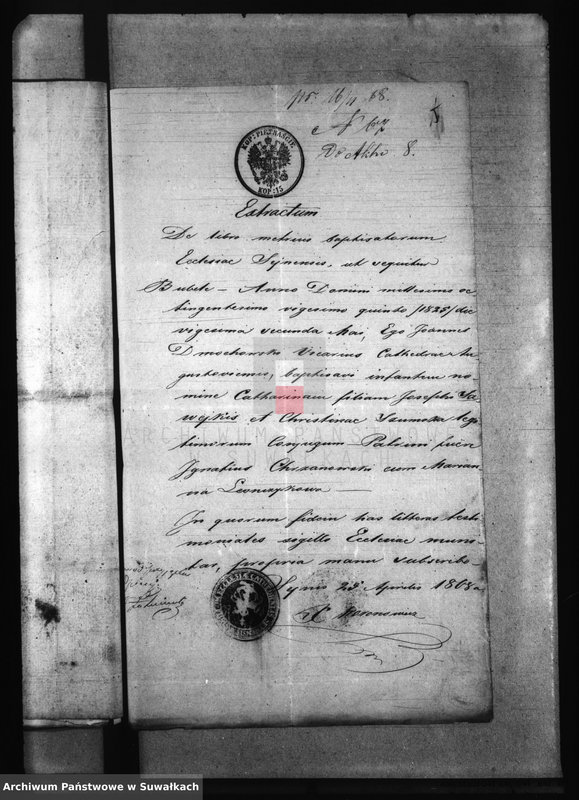 pr. 16/4 68.
N 67
Do Aktu 8.
KOP: PIĘTNAŚCIE
KOP: 15
Extractum
De libro metrices baptisatorum
Ecclesiae Sejnensis, ut sequitur
Bubele – Anno Domini millesimo oc
tingentesimo vigesimo quinto /1825/ die
vigesima secunda Mai, Ego Joannes
Dmochowski Vicarius Cathedrae Au
gustoviensis, baptisavi infantem no
mine Catharinam filiam Josephi
et Christinae legi
timorum Conjugum Patrini fuere
Ignatius Chrzanowski cum Marian
na
In quorum fidem has litteras testi
moniales sigillo Ecclesiae muni
tas, propria manu subscribo
Sejny 28 Aprilis 1868 a
ARCHIWUM PAŃSTWOWE
W SUWAŁKACH
Archiwum Państwowe w Suwałkach